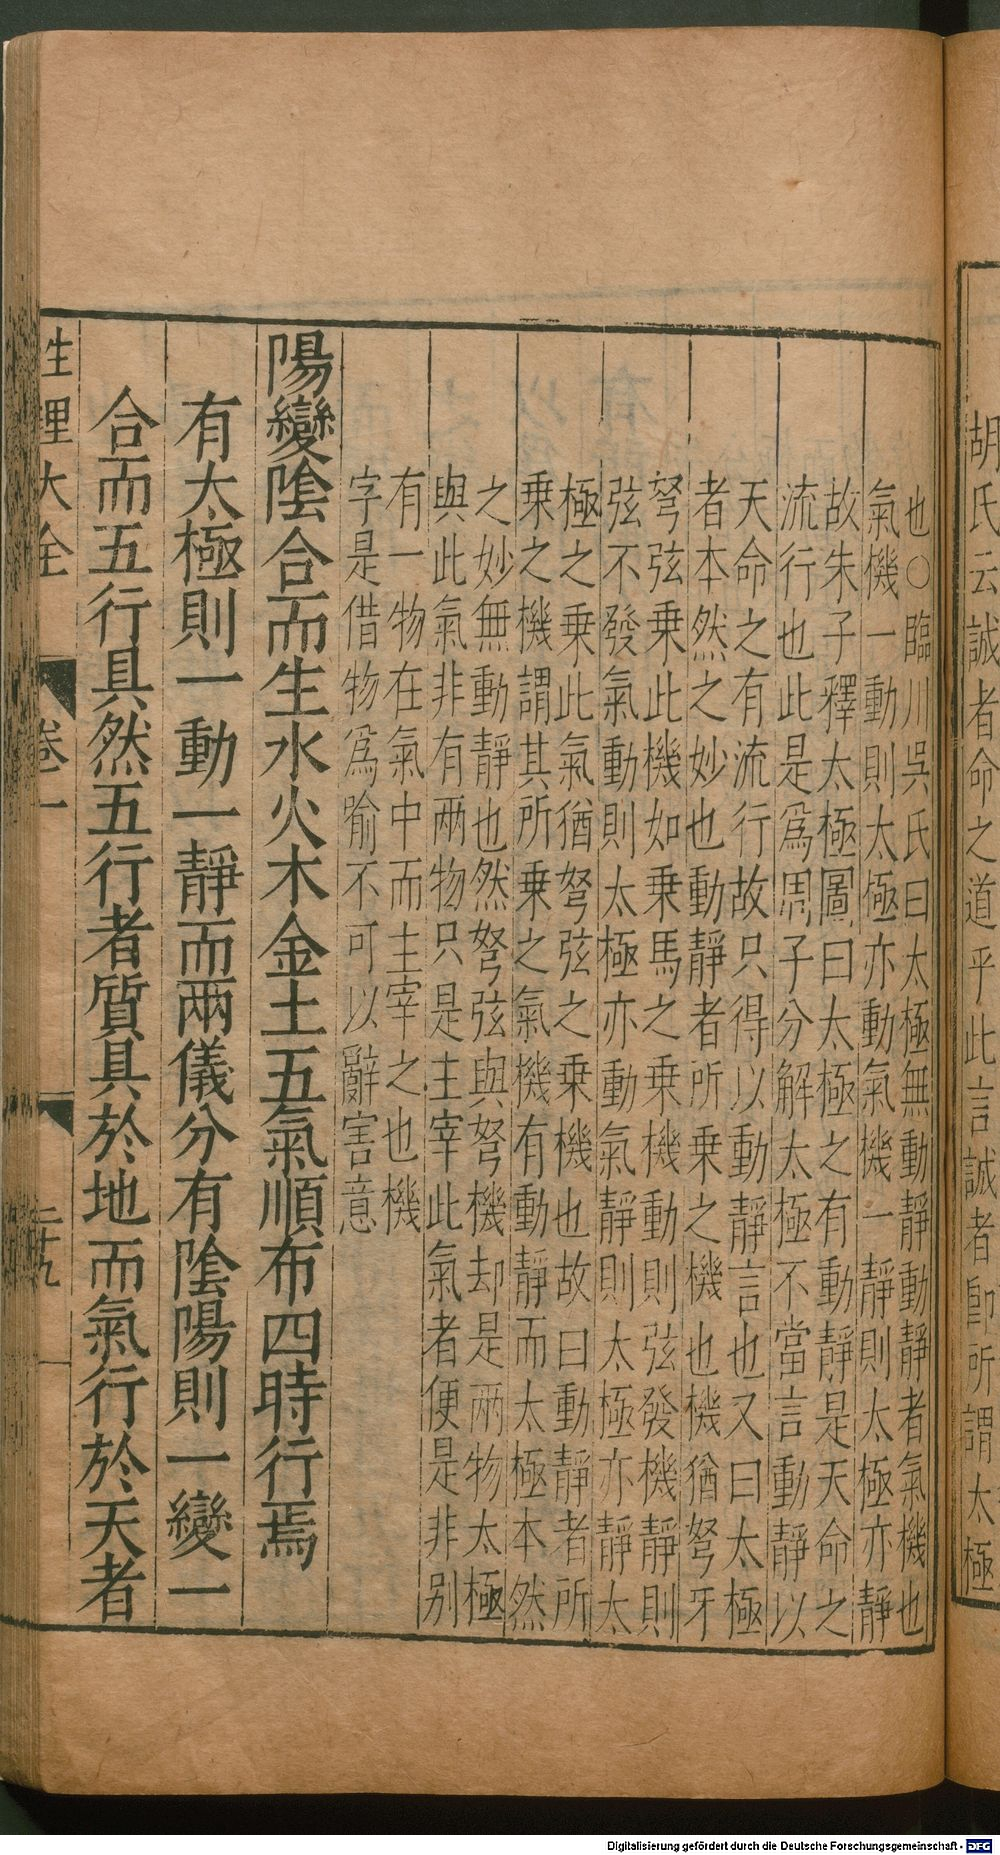 胡氏云誠者命之道乎此言誠者卽所謂太極
也○臨川吳氏曰太極無動靜動靜者氣機也
氣機一動則太極亦動氣機一靜則太極亦靜
故朱子釋太極圖曰太極之有動靜是天命之
流行也此是爲周子分解太極不當言動靜以
天命之有流行故只得以動靜言也又曰太極
者本然之妙也動靜者所乘之機也機猶弩牙
弩弦乘此機如乘馬之乘機動則弦發機靜則
弦不發氣動則太極亦動氣靜則太極亦靜太
極之乘此氣猶弩弦之乘機也故曰動靜者所
乘之機謂其所乘之氣機有動靜而太極本然
之妙無動靜也然弩弦與弩機却是兩物太極
與此氣非有兩物只是主宰此氣者便是非別
有一物在氣中而主宰之也機
字是借物爲喻不可以辭害意
陽變陰合而生水火木金土五氣順布四時行焉
有太極則一動一靜而兩儀分有陰陽則一變一
合而五行具然五行者質具於地而氣行於天者
性理大全 卷一 二十九
Digitalisierung gefördert durch die Deutsche Forschungsgemeinschaft - DFG